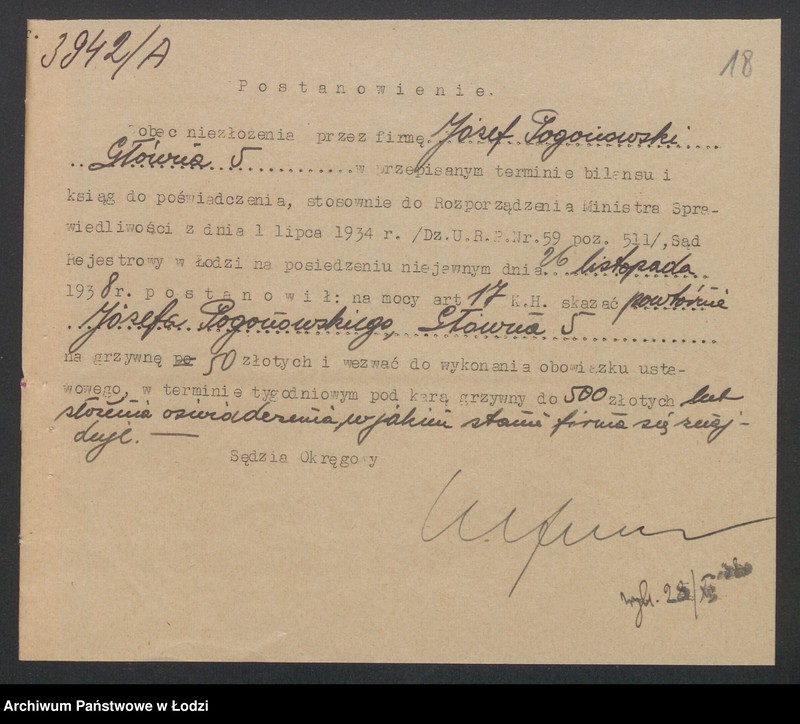 3942/A
18
Postanowienie.
Wobec niezłożenia przez firmę Józef Pogonowski
Główna 5 w przepisanym terminie bilansu i
ksiąg do poświadczenia, stosownie do Rozporządzenia Ministra Spra-
wiedliwości z dnia 1 lipca 1934 r. /Dz.U.R.P.Nr.59 poz. 511/, Sąd
Rejestrowy w Łodzi na posiedzeniu niejawnym dnia 26 listopada
1938 r. postanowił: na mocy art 17 K.H. skazać powtórnie
Józefa Pogonowskiego, Główna 5
na grzywnę po 50 złotych i wezwać do wykonania obowiązku usta-
wowego, w terminie tygodniowym pod karą grzywny do 500 złotych lub
złożenia oświadczenia, w jakim stanie firma się znaj-
duje. —
Sędzia Okręgowy
28/XI
Archiwum Państwowe w Łodzi